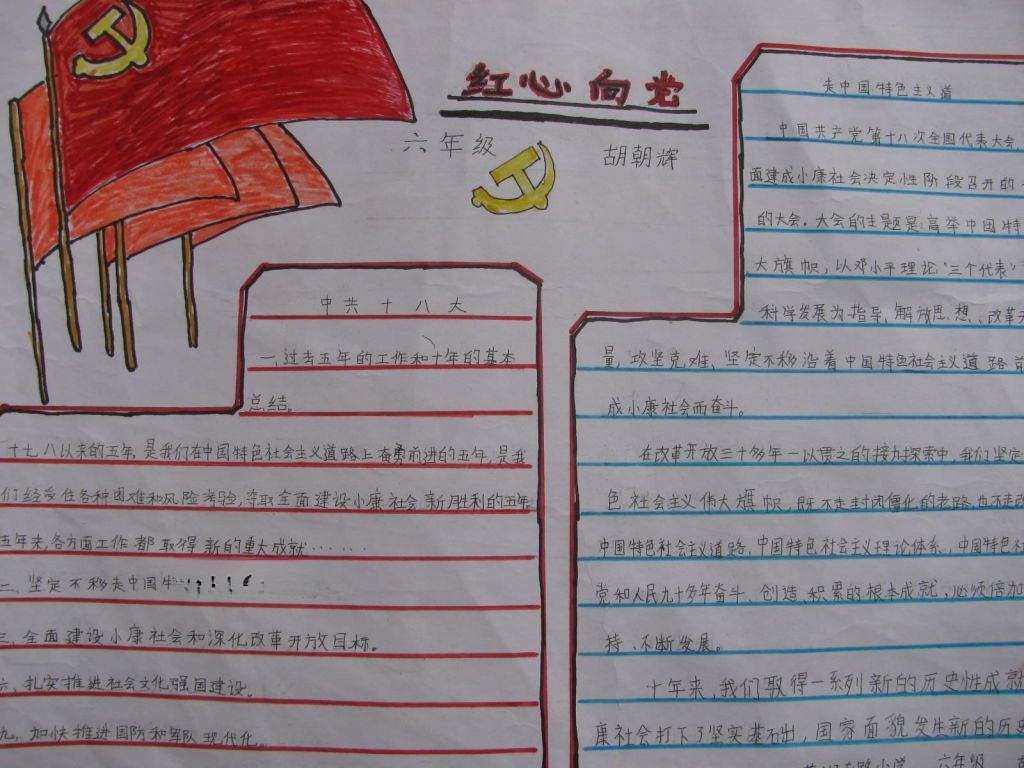 红心向党
六年级 胡朝辉
中共十八大
一、过去五年的工作和十年的基本
总结。
十七八以来的五年,是我们在中国特色社会主义道路上奋勇前进的五年,是我
们经受住各种困难和风险考验,夺取全面建设小康社会新胜利的五年
五年来,各方面工作都取得新的重大成就……
二、坚定不移走中国
三、全面建设小康社会和深化改革开放目标。
六、扎实推进社会文化强国建设。
九、加快推进国防和军队现代化。
走中国特色主义道
中国共产党第十八次全国代表大会,
面建成小康社会决定性阶段召开的
的大会。大会的主题是:高举中国特
大旗帜,以邓小平理论“三个代表”
科学发展为指导、解放思想、改革
量,攻坚克难、坚定不移沿着中国特色社会主义道路前
成小康社会而奋斗。
在改革开放三十多年一以贯之的接力探索中,我们坚定
色社会主义伟大旗帜,既不走封闭僵化的老路,也不走改
中国特色社会主义道路,中国特色社会主义理论体系,中国特色社
党和人民九十多年奋斗、创造、积累的根本成就,必须倍加
持、不断发展。
十年来,我们取得一系列新的历史性成就
康社会打下了坚实基石出,国家面貌发生新的历史
路小学 六年级